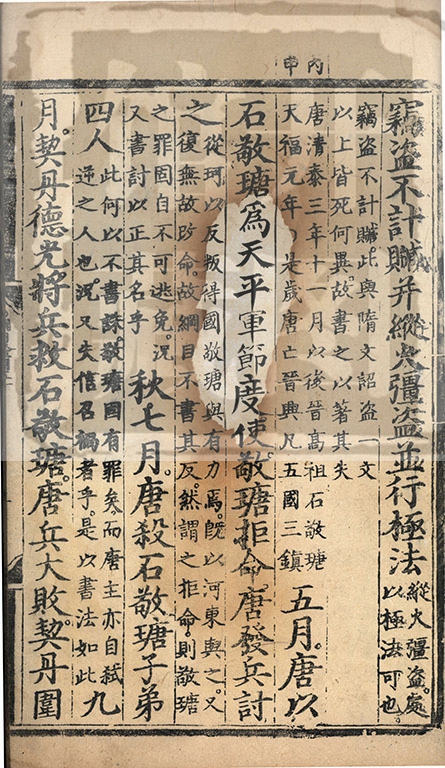 丙申
竊盜不計贓并縱火彊盜並行極法
縱火彊盜處
以極法可也
竊盜不計贓此與隋文詔盜一文
以上皆死何異故書之以著其失
唐清泰三年十一月以後晉高祖石敬瑭
天福元年 是歲唐亡晉興凡五國三鎮
五月。唐以
石敬瑭爲天平軍節度使。敬瑭拒命。唐發兵討
之
從珂以反叛得國敬瑭與有力焉。旣以河東與之。又
復無故改命。故綱目不書其反。然謂之拒命。則敬瑭
之罪固自不可逃免。況
又書討以正其名乎
秋七月。唐殺石敬瑭子弟
四人
此何以不書誅。敬瑭固有罪矣。而唐主亦自弑
逆之人也。況又失信召禍者乎。是以書法如此
九
月。契丹德光將兵救石敬瑭。唐兵大敗。契丹圍